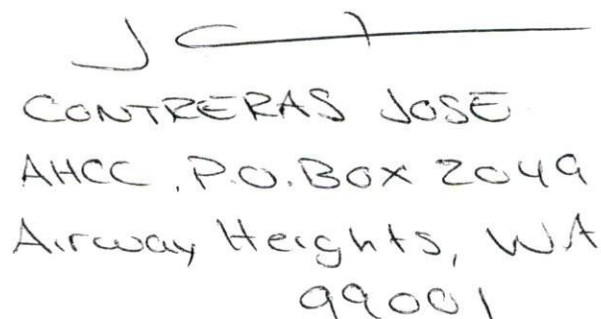 CONTRERAS JOSE
AHCC, P.O. BOX 2049
Airway Heights, WA
99001